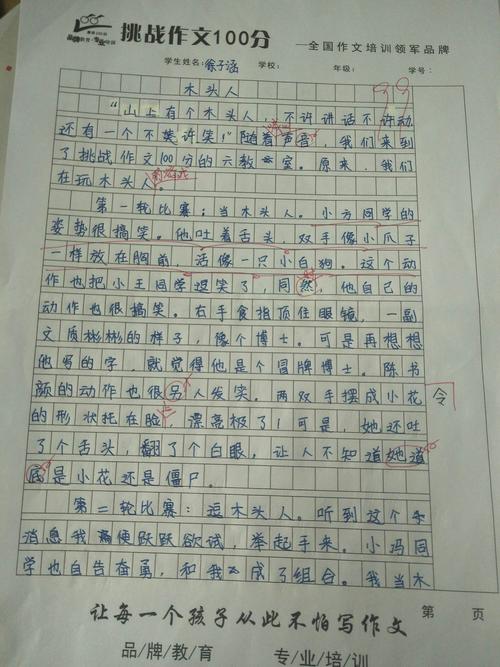 挑战作文100分
品牌教育·专业培训
—全国作文培训领军品牌
学生姓名:徐子涵 学校: 年级: 学号:
99
木头人
“山上有个木头人，不许讲话不许动
还有一个不许笑！”随着声音，我们来到
了挑战作文100分的六教室。原来，我们
在玩木头人。
的游戏
第一轮比赛：当木头人。小方同学的
姿势很搞笑。他吐着舌头，双手像小爪子
一样放在胸前，活像一只小白狗。这个动
作也把小王同学逗笑了，同然，他自己的
动作也很搞笑。右手食指顶住眼镜，一副
文质彬彬的样子，像个博士。可是再想想
他写的字，就觉得他是个冒牌博士。陈书
颜的动作也很另人发笑。两双手摆成小花
令
的形状托在脸，漂亮极了！可是，她还吐
了个舌头，翻了个白眼。让人不知道她道
底是小花还是僵尸。
第二轮比赛：逗木头人。听到这个
消息我便跃跃欲试，举起手来。小冯同
学也自告奋勇，和我成了组合。我当木
让每一个孩子从此不怕写作文
第 页
品/牌/教/育 专/业/培/训